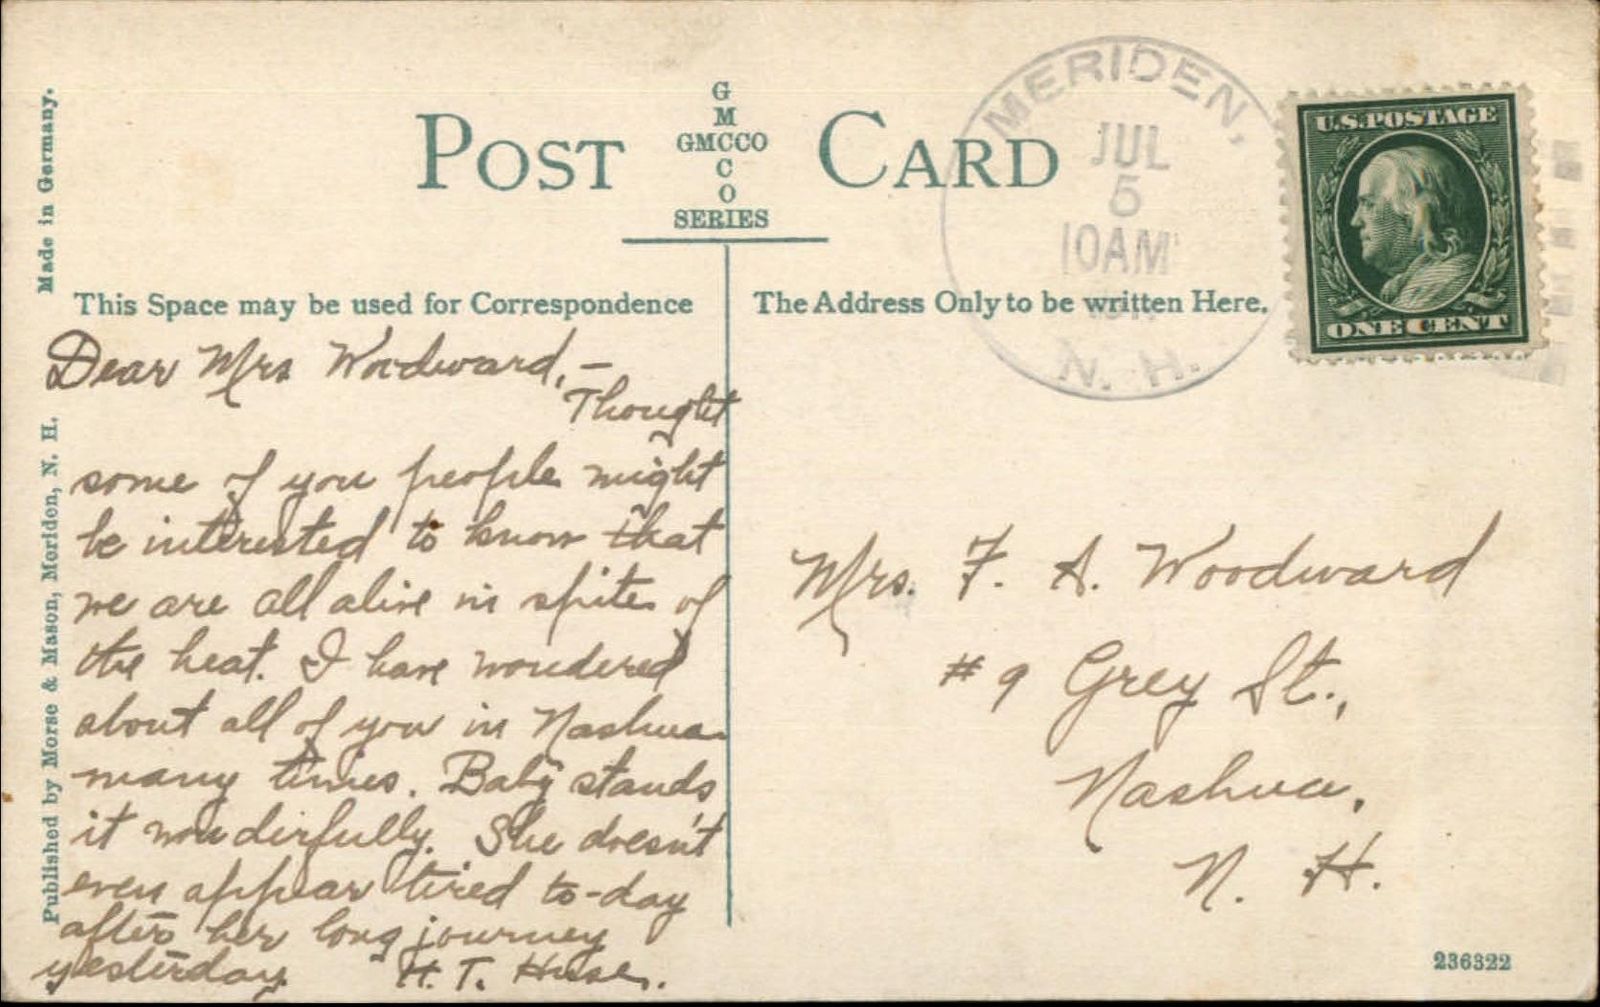 Made in Germany.
Published by Morse & Mason, Meriden, N. H.
POST CARD
G
M
GMCCO
C
O
SERIES
This Space may be used for Correspondence
The Address Only to be written Here.
MERIDEN,
JUL
5
10AM
N. H.
U.S.POSTAGE
ONE CENT
Dear Mrs Woodward,—
Thought
some of you people might
be interested to know that
we are all alive in spite of
the heat. I have wondered
about all of you in Nashua
many times. Baby stands
it wonderfully. She doesn't
even appear tired to-day
after her long journey
yesterday. H. T. Huse.
Mrs. F. A. Woodward
# 9 Grey St.,
Nashua,
N. H.
236322